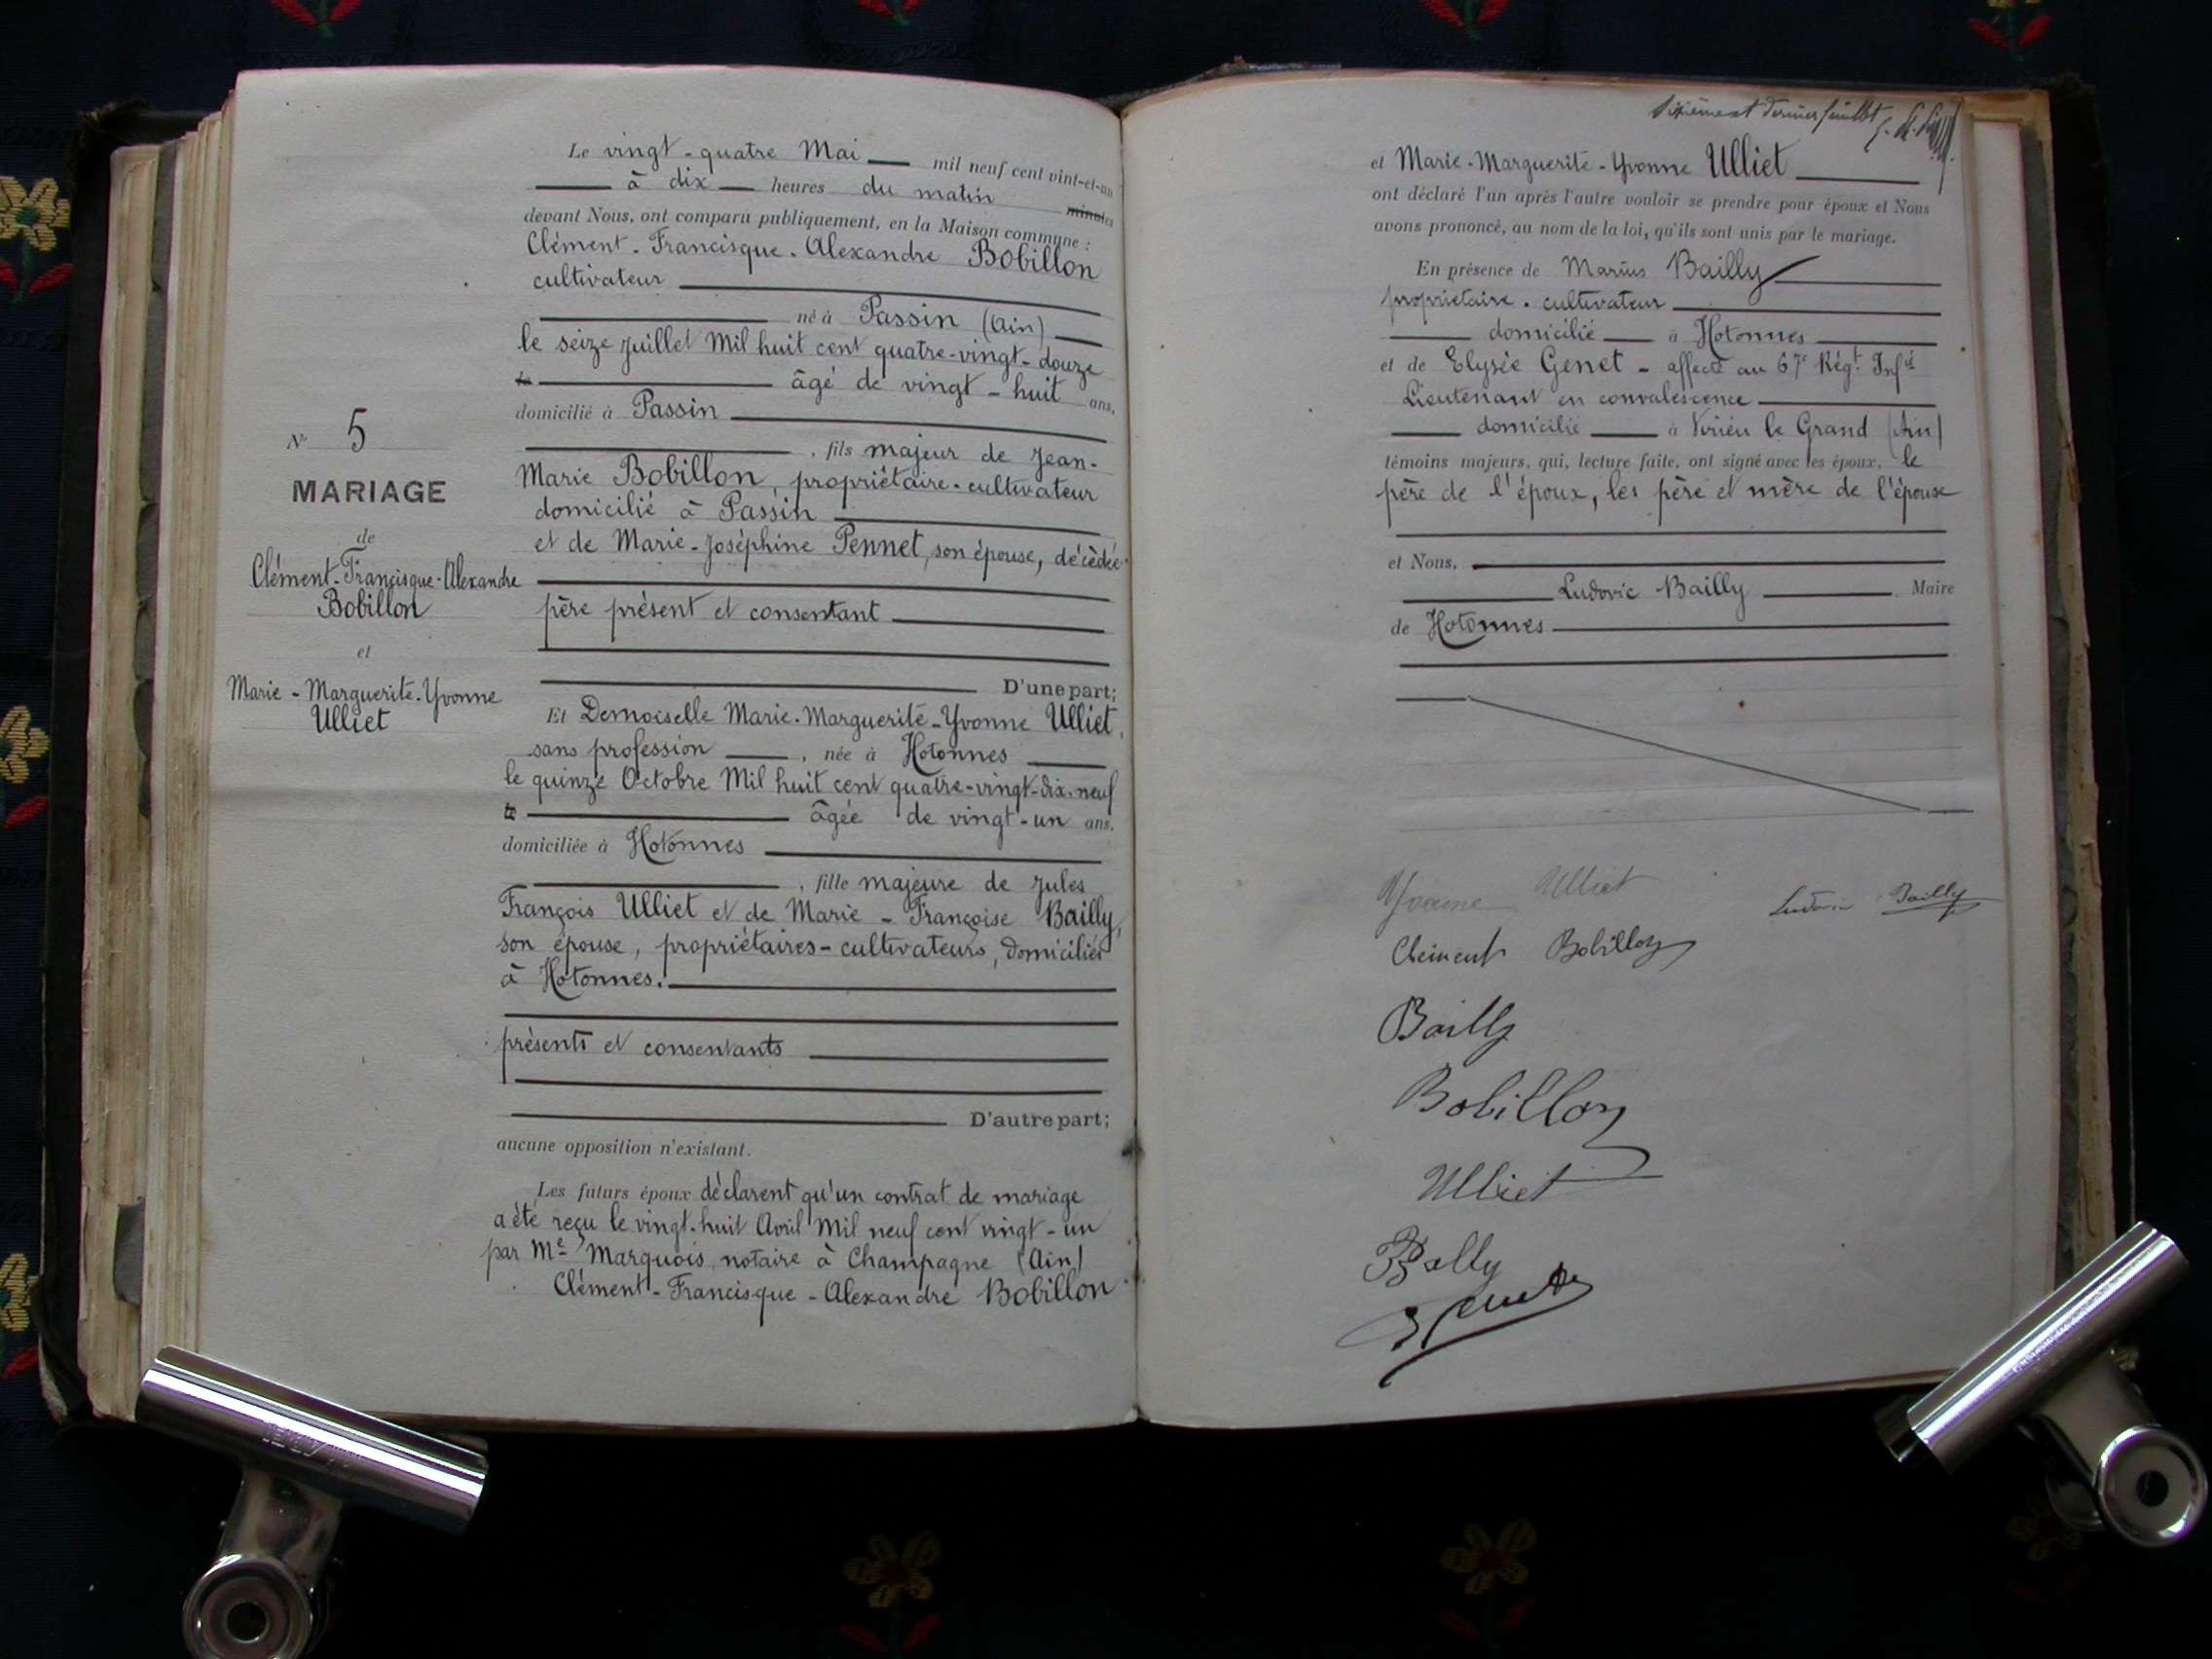 N° 5
MARIAGE
de
Clément-Francisque-Alexandre
Bobillon
et
Marie-Marguerite-Yvonne
Ulliet
Le vingt-quatre Mai mil neuf cent vint-et-un
à dix heures du matin minutes
devant Nous, ont comparu publiquement, en la Maison commune :
Clément-Francisque-Alexandre Bobillon
cultivateur
né à Passin (Ain)
le seize Juillet Mil huit cent quatre-vingt-douze
le âgé de vingt-huit ans,
domicilié à Passin
, fils majeur de Jean-
Marie Bobillon, propriétaire-cultivateur
domicilié à Passin
et de Marie-Joséphine Pennet, son épouse, décédée
père présent et consentant
D'une part;
Et Demoiselle Marie-Marguerite-Yvonne Ulliet,
sans profession, née à Hotonnes
le quinze Octobre Mil huit cent quatre-vingt-dix-neuf
le âgée de vingt-un ans,
domiciliée à Hotonnes
, fille majeure de Jules
François Ulliet et de Marie-Françoise Bailly,
son épouse, propriétaires-cultivateurs, domiciliés
à Hotonnes.
présents et consentants
D'autre part;
aucune opposition n'existant.
Les futurs époux déclarent qu'un contrat de mariage
a été reçu le vingt-huit Avril Mil neuf cent vingt-un
par Me Marquois, notaire à Champagne (Ain)
Clément-Francisque-Alexandre Bobillon
dernier feuillet
et Marie-Marguerite-Yvonne Ulliet
ont déclaré l'un après l'autre vouloir se prendre pour époux et Nous
avons prononcé, au nom de la loi, qu'ils sont unis par le mariage.
En présence de Marius Bailly
propriétaire-cultivateur
domicilié à Hotonnes
et de Elysée Genet - affecté au 67e Régt Infie
Lieutenant en convalescence
domicilié à Virieu le Grand (Ain)
témoins majeurs, qui, lecture faite, ont signé avec les époux, le
père de l'époux, les père et mère de l'épouse
et Nous,
Ludovic Bailly Maire
de Hotonnes
Yvonne Ulliet
Ludovic Bailly
Clément Bobillon
Bailly
Bobillon
Ulliet
Bailly
Genet